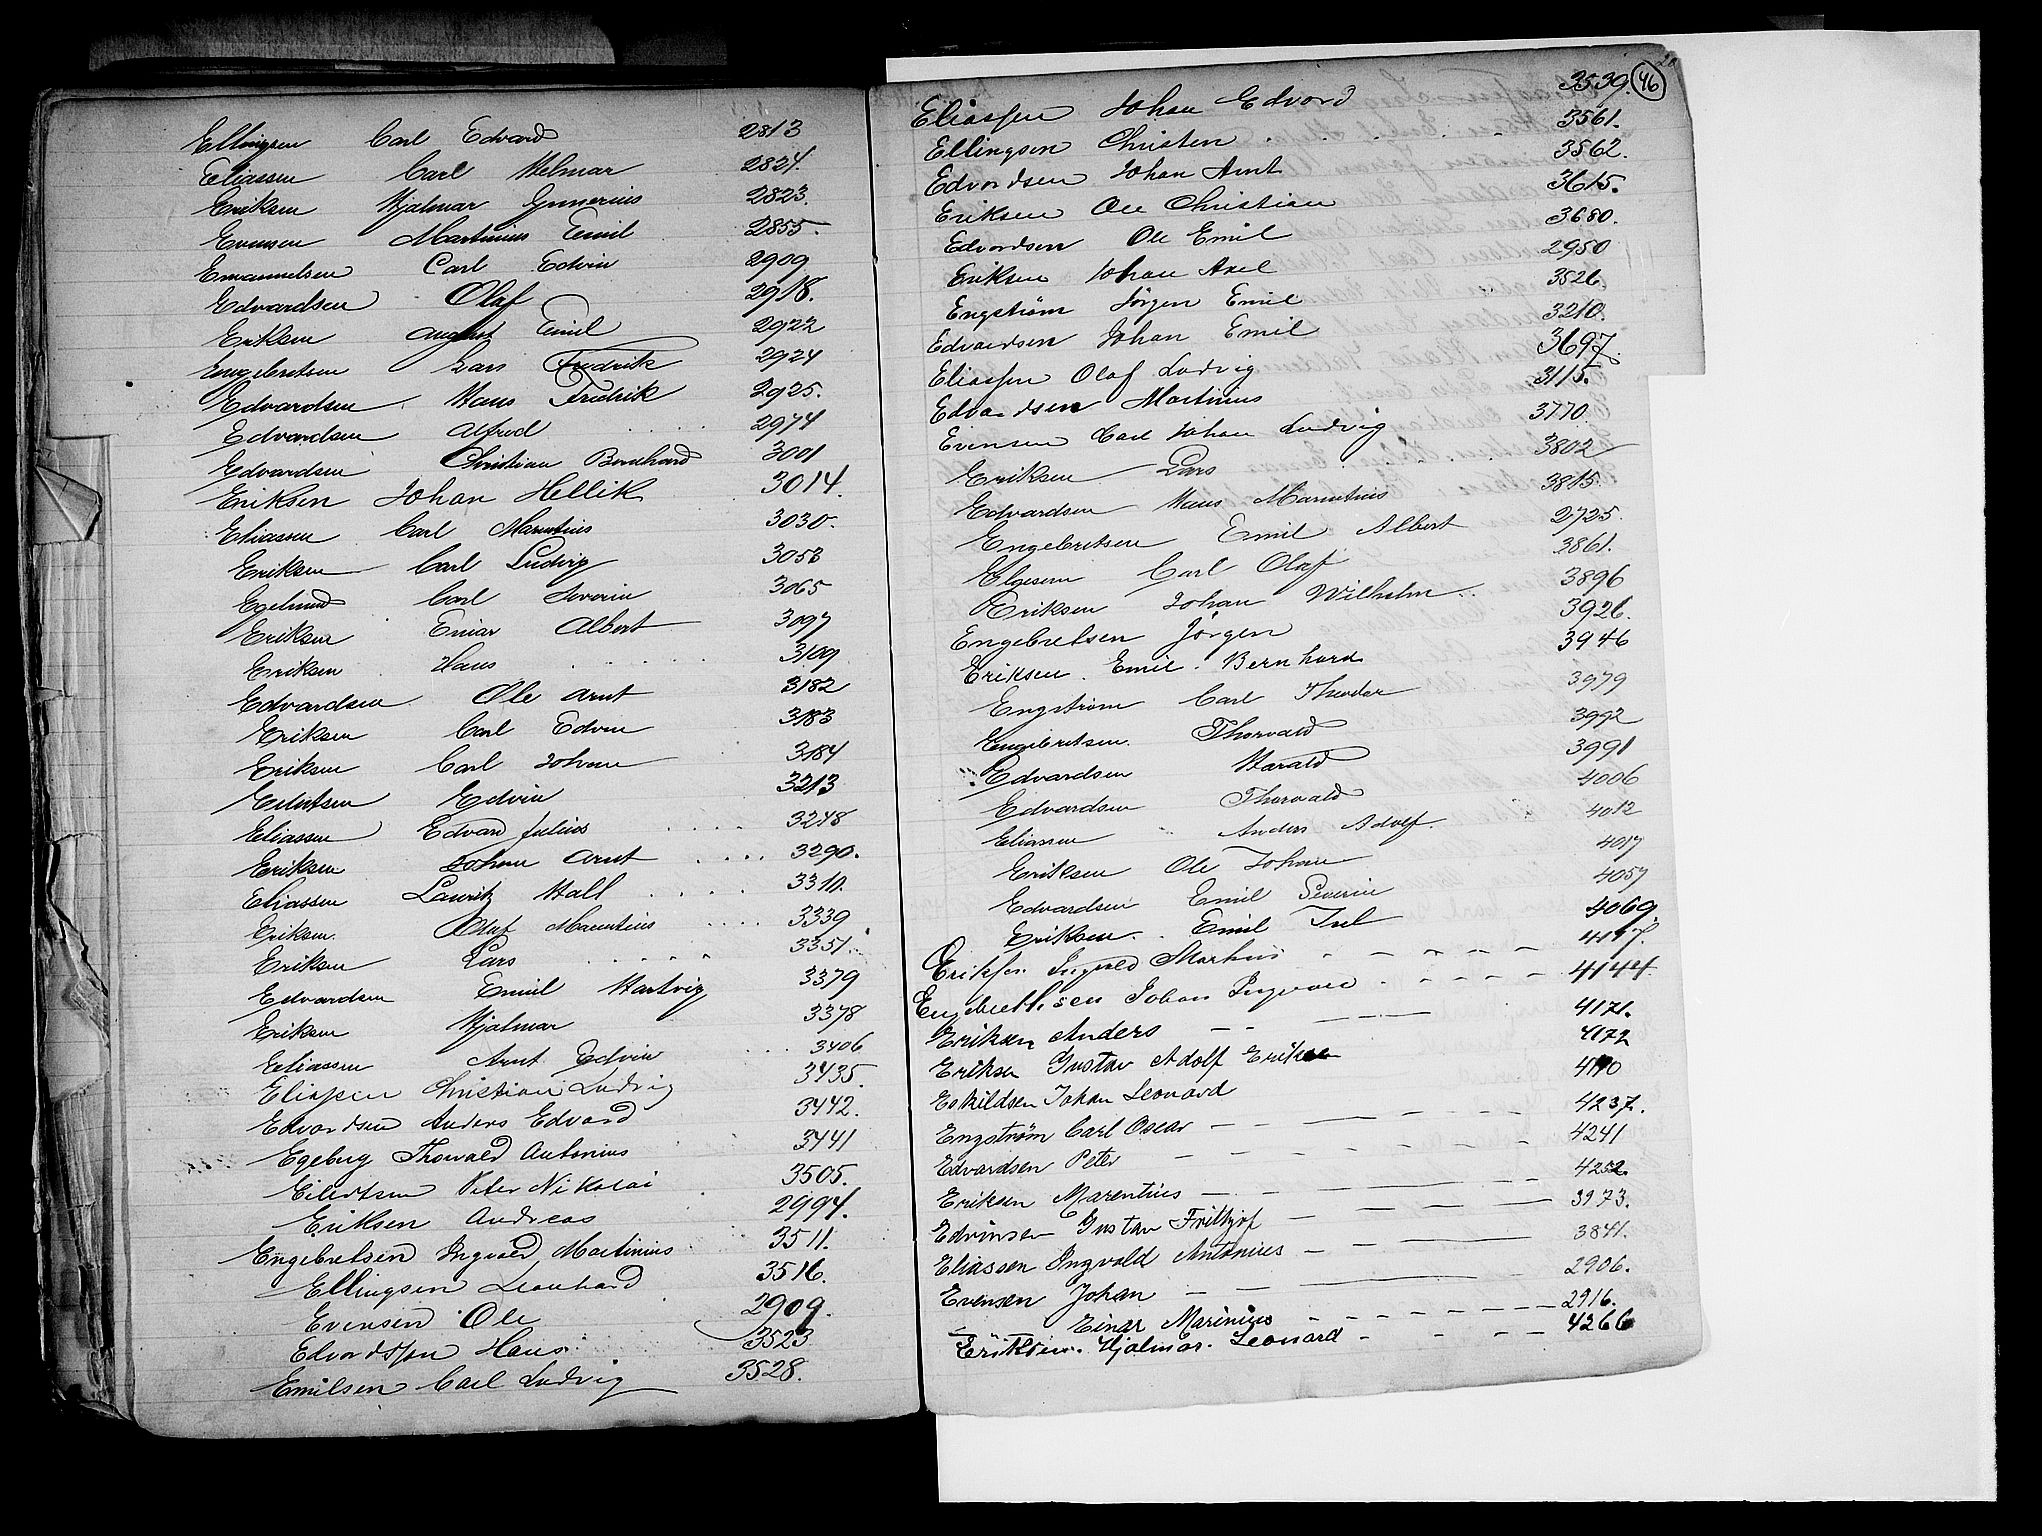 Ellingsen Carl Edvard 2813
Eliassen Carl Helmar 2824.
Eriksen Hjalmar Gunerius 2823.
Evensen Martinius Emil 2855.
Emanuelsen Carl Edvin 2909
Edvardsen Olaf 2918.
Eriksen August Emil 2922
Engebretsen Lars Fredrik 2924
Edvardsen Hans Fredrik 2925.
Edvardsen Alfred 2974
Edvardsen Christian Bernhard 3001
Eriksen Johan Hellik 3014.
Eliassen Carl Marentius 3030.
Eriksen Carl Ludvig 3053
Egelund Carl Severin 3065
Eriksen Einar Albert 3097
Eriksen Hans 3109
Edvardsen Ole Arnt 3182
Eriksen Carl Edvin 3183
Eriksen Carl Johan 3184
Eilertsen Edvin 3213
Eliassen Edvard Julius 3248
Eriksen Johan Arnt 3290.
Eliassen Lauritz Hall 3310.
Eriksen Olaf Marentius 3339
Eriksen Lars 3351.
Edvardsen Emil Hartvig 3379
Eriksen Hjalmar 3378
Eliassen Arnt Edvin 3406
Eliassen Christian Ludvig 3435.
Edvardsen Anders Edvard 3442.
Egeberg Thorvald Antonius 3441
Eilertsen Peter Nikolai 3505.
Eriksen Andreas 2994.
Engebretsen Ingvald Martinius 3511.
Ellingsen Leonhard 3516.
Evensen Ole 2909.
Edvardsen Hans 3523
Emilsen Carl Ludvig 3528.
20
46
Eliassen Johan Edvard 3539.
Ellingsen Christen 3561.
Edvardsen Johan Arnt 3562.
Eriksen Ole Christian 3615.
Edvardsen Ole Emil 3680.
Eriksen Johan Axel 2950
Engstrøm Jørgen Emil 3526
Edvardsen Johan Emil 3210.
Eliassen Olaf Ludvig 3697.
Edvardsen Martinius 3115.
Evensen Carl Johan Ludvig 3770
Eriksen Lars 3802
Edvardsen Hans Marentius 3815.
Engebretsen Emil Albert 2725.
Elgesem Carl Olaf 3861.
Eriksen Johan Wilhelm 3896
Engebretsen Jørgen 3926.
Eriksen Emil Bernhard 3946
Engstrøm Carl Theodor 3979
Engebretsen Thorvald 3992
Edvardsen Harald 3991
Edvardsen Thorvald 4006
Eliassen Anders Adolf. 4012
Eriksen Ole Johan 4017
Edvardsen Emil Severin 4057
Eriksen Emil 4069.
Eriksen Ingvald Markus 4117.
Engebrethsen Johan Ingvald 4144.
Eriksen Anders 4171.
Eriksen Gustav Adolf Eriksen 4172
Eskildsen Johan Leonard
Engstrøm Carl Oscar 4237.
Edvardsen Peter 4241
Eriksen Marentius 4252.
Edvinsen Gustav Fritjof 3973.
Eliassen Ingvald Antonius 3841.
Evensen Johan 2906.
Einar Marinius 2916.
Eriksen Hjalmar Leonard 4266